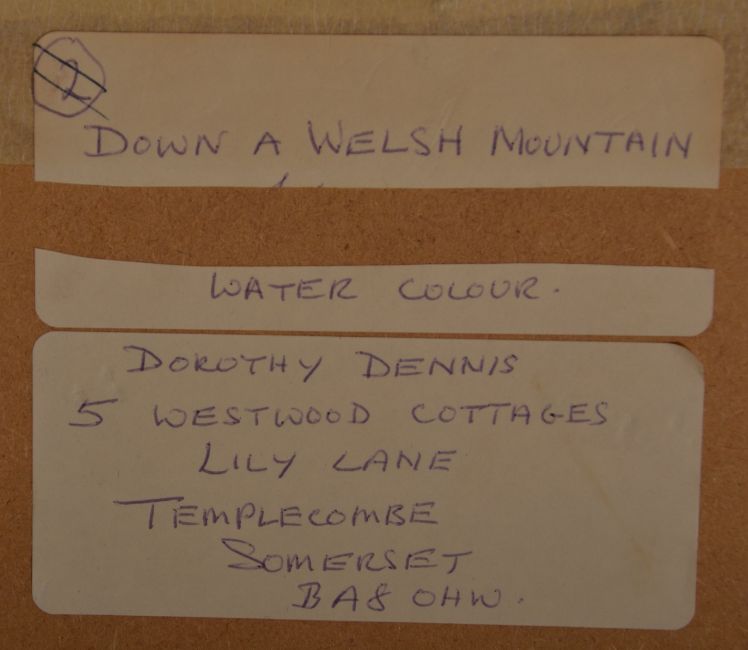 2
DOWN A WELSH MOUNTAIN
WATER COLOUR.
DOROTHY DENNIS
5 WESTWOOD COTTAGES
LILY LANE
TEMPLECOMBE
SOMERSET
BA8 OHW.